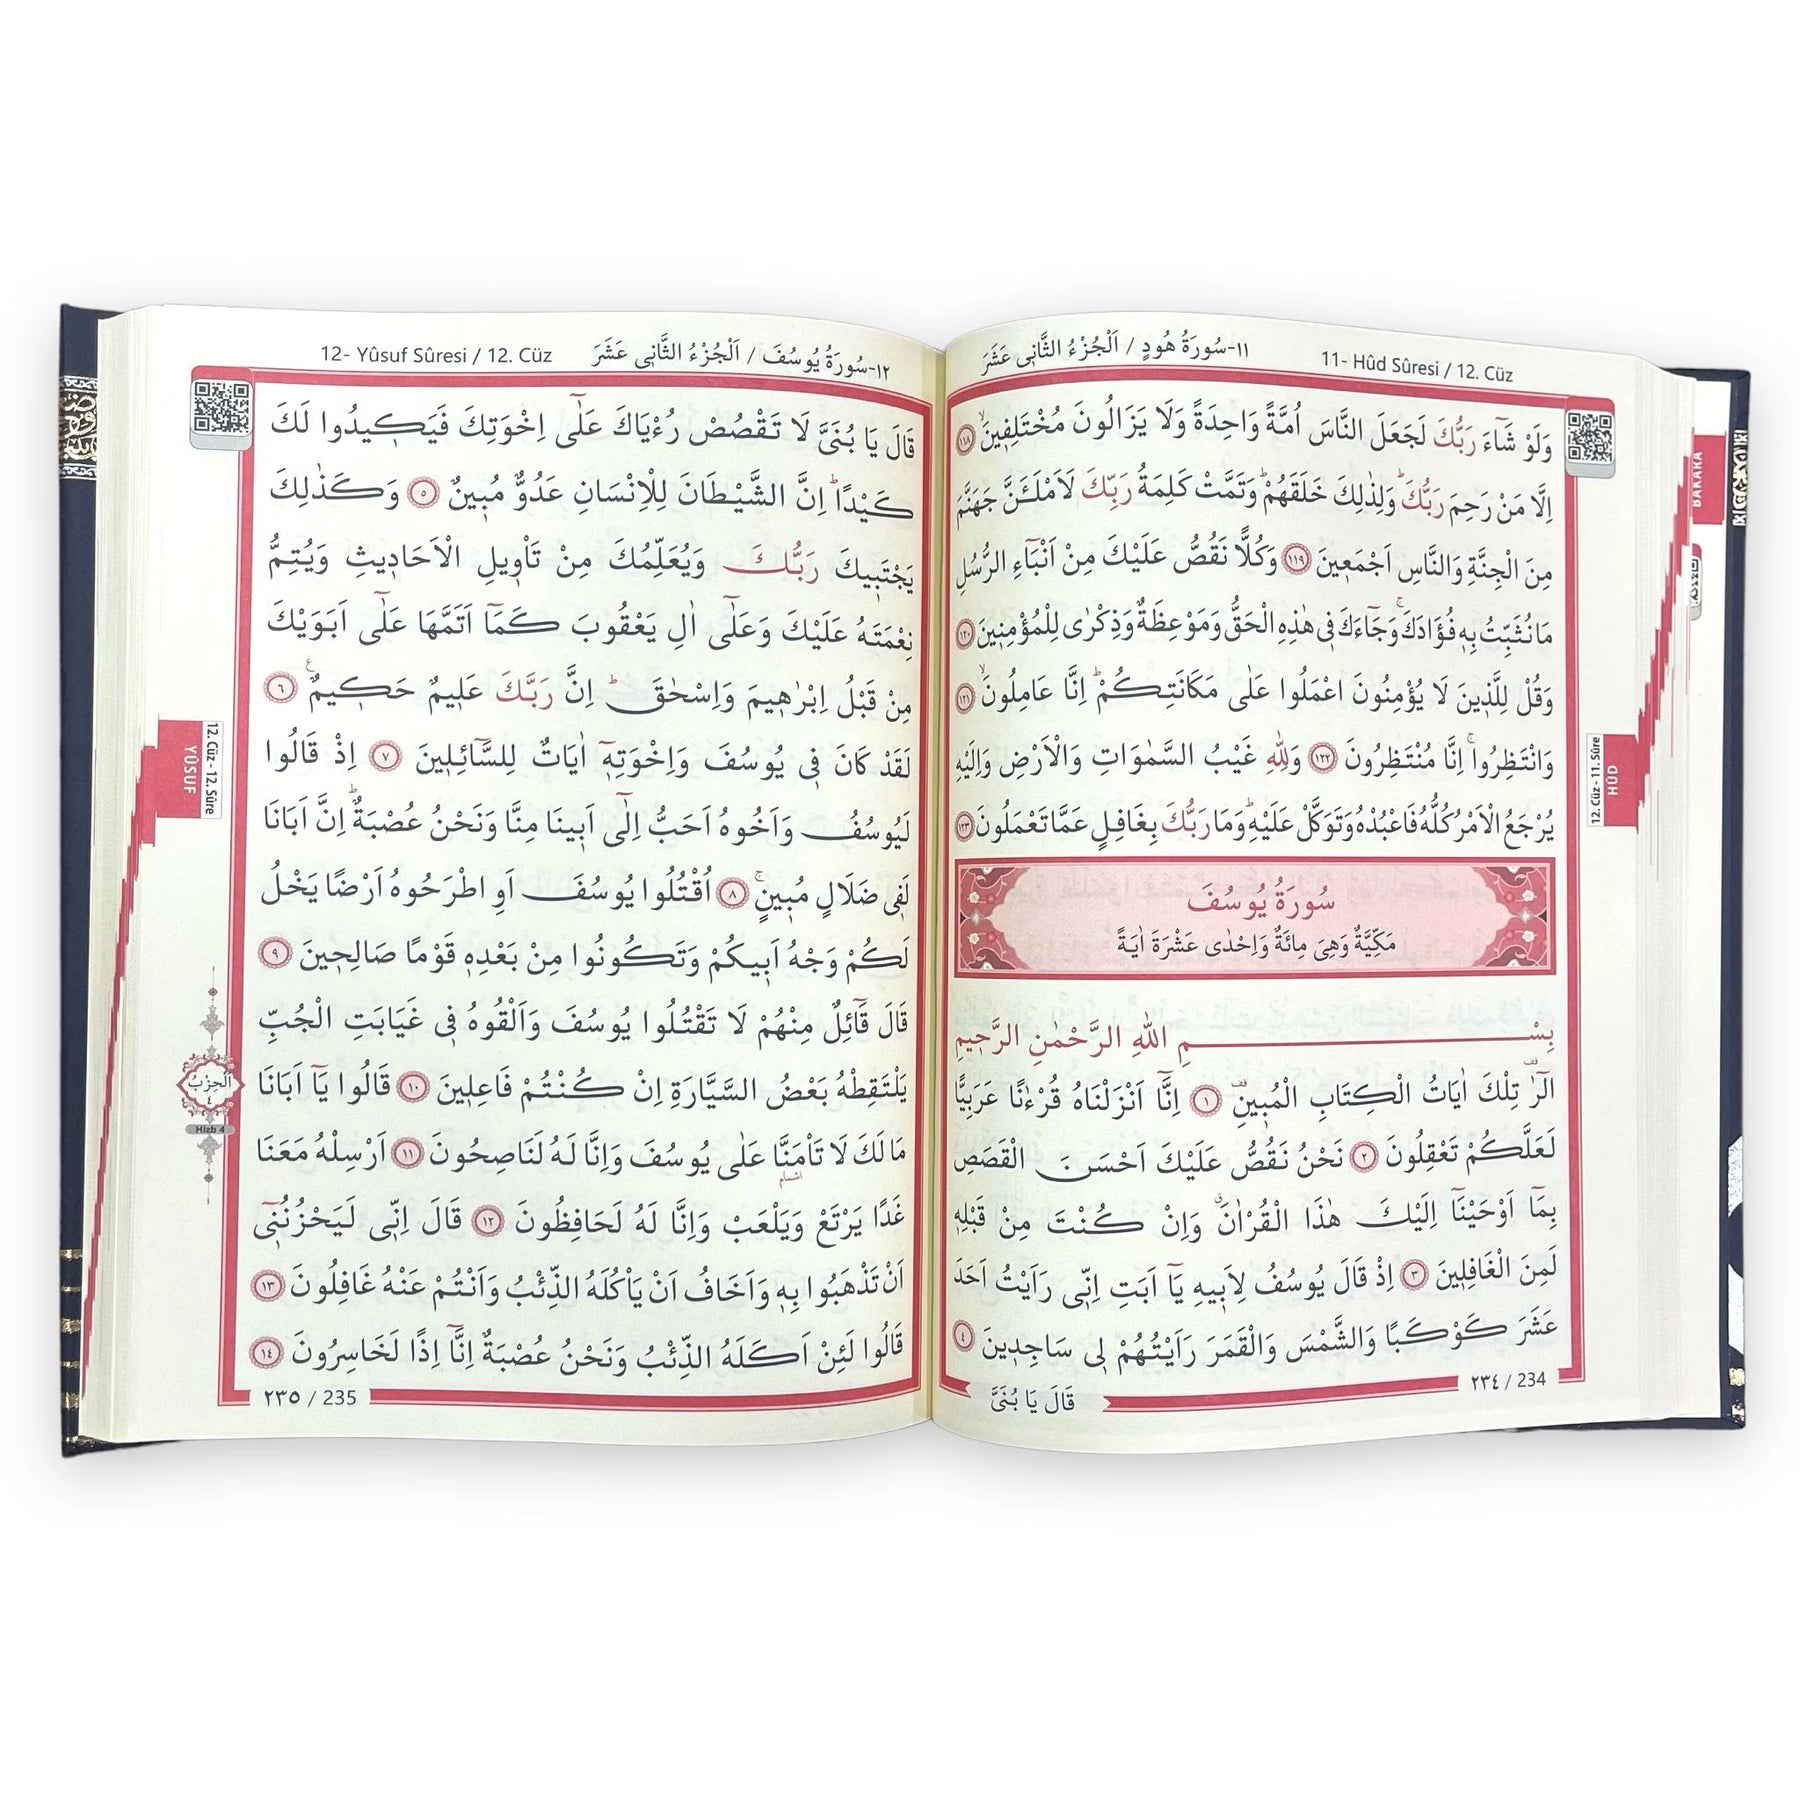 11- Hûd Sûresi / 12. Cüz
١١-سُورَةُ هُودٍ / اَلْجُزْءُ الثَّانِى عَشَرَ
وَلَوْ شَٓاءَ رَبُّكَ لَجَعَلَ النَّاسَ اُمَّةً وَاحِدَةً وَلَا يَزَالُونَ مُخْتَلِف۪ينَۙ ١١٨
اِلَّا مَنْ رَحِمَ رَبُّكَۜ وَلِذٰلِكَ خَلَقَهُمْۜ وَتَمَّتْ كَلِمَةُ رَبِّكَ لَاَمْلَـَٔنَّ جَهَنَّمَ
مِنَ الْجِنَّةِ وَالنَّاسِ اَجْمَع۪ينَ ١١٩ وَكُلًّا نَقُصُّ عَلَيْكَ مِنْ اَنْبَٓاءِ الرُّسُلِ
مَا نُثَبِّتُ بِه۪ فُؤٰادَكَۚ وَجَٓاءَكَ ف۪ي هٰذِهِ الْحَقُّ وَمَوْعِظَةٌ وَذِكْرٰى لِلْمُؤْمِن۪ينَ ١٢٠
وَقُلْ لِلَّذ۪ينَ لَا يُؤْمِنُونَ اعْمَلُوا عَلٰى مَكَانَتِكُمْۜ اِنَّا عَامِلُونَۙ ١٢١
وَانْتَظِرُواۚ اِنَّا مُنْتَظِرُونَ ١٢٢ وَلِلّٰهِ غَيْبُ السَّمٰوَاتِ وَالْاَرْضِ وَاِلَيْهِ
يُرْجَعُ الْاَمْرُ كُلُّهُ فَاعْبُدْهُ وَتَوَكَّلْ عَلَيْهِۜ وَمَا رَبُّكَ بِغَافِلٍ عَمَّا تَعْمَلُونَ ١٢٣
سُورَةُ يُوسُفَ
مَكِّيَّةٌ وَهِيَ مِائَةٌ وَاِحْدٰى عَشْرَةَ اٰيَةً
بِسْمِ اللّٰهِ الرَّحْمٰنِ الرَّح۪يمِ
الٓرٰ۠ تِلْكَ اٰيَاتُ الْكِتَابِ الْمُب۪ينِ۠ ١ اِنَّٓا اَنْزَلْنَاهُ قُرْءٰنًا عَرَبِيًّا
لَعَلَّكُمْ تَعْقِلُونَ ٢ نَحْنُ نَقُصُّ عَلَيْكَ اَحْسَنَ الْقَصَصِ
بِمَٓا اَوْحَيْنَٓا اِلَيْكَ هٰذَا الْقُرْاٰنَۗ وَاِنْ كُنْتَ مِنْ قَبْلِه۪
لَمِنَ الْغَافِل۪ينَ ٣ اِذْ قَالَ يُوسُفُ لِاَب۪يهِ يَٓا اَبَتِ اِنّ۪ي رَاَيْتُ اَحَدَ
عَشَرَ كَوْكَبًا وَالشَّمْسَ وَالْقَمَرَ رَاَيْتُهُمْ ل۪ي سَاجِد۪ينَ ٤
٢٣٤ / 234
قَالَ يَا بُنَيَّ
12. Cüz - 11. Sûre
HÛD
BAKARA
12- Yûsuf Sûresi / 12. Cüz
١٢-سُورَةُ يُوسُفَ / اَلْجُزْءُ الثَّانِى عَشَرَ
قَالَ يَا بُنَيَّ لَا تَقْصُصْ رُءْيَاكَ عَلٰٓى اِخْوَتِكَ فَيَك۪يدُوا لَكَ
كَيْدًاۜ اِنَّ الشَّيْطَانَ لِلْاِنْسَانِ عَدُوٌّ مُب۪ينٌ ٥ وَكَذٰلِكَ
يَجْتَب۪يكَ رَبُّكَ وَيُعَلِّمُكَ مِنْ تَأْو۪يلِ الْاَحَاد۪يثِ وَيُتِمُّ
نِعْمَتَهُ عَلَيْكَ وَعَلٰٓى اٰلِ يَعْقُوبَ كَمَٓا اَتَمَّهَا عَلٰٓى اَبَوَيْكَ
مِنْ قَبْلُ اِبْرٰه۪يمَ وَاِسْحٰقَۜ اِنَّ رَبَّكَ عَل۪يمٌ حَك۪يمٌ۟ ٦
لَقَدْ كَانَ ف۪ي يُوسُفَ وَاِخْوَتِه۪ٓ اٰيَاتٌ لِلسَّٓائِل۪ينَ ٧ اِذْ قَالُوا
لَيُوسُفُ وَاَخُوهُ اَحَبُّ اِلٰٓى اَب۪ينَا مِنَّا وَنَحْنُ عُصْبَةٌۜ اِنَّ اَبَانَا
لَف۪ي ضَلَالٍ مُب۪ينٍۚ ٨ اُقْتُلُوا يُوسُفَ اَوِ اطْرَحُوهُ اَرْضًا يَخْلُ
لَكُمْ وَجْهُ اَب۪يكُمْ وَتَكُونُوا مِنْ بَعْدِه۪ قَوْمًا صَالِح۪ينَ ٩
قَالَ قَٓائِلٌ مِنْهُمْ لَا تَقْتُلُوا يُوسُفَ وَاَلْقُوهُ ف۪ي غَيَابَتِ الْجُبِّ
يَلْتَقِطْهُ بَعْضُ السَّيَّارَةِ اِنْ كُنْتُمْ فَاعِل۪ينَ ١٠ قَالُوا يَٓا اَبَانَا
مَا لَكَ لَا تَأْمَنَّا عَلٰى يُوسُفَ وَاِنَّا لَهُ لَنَاصِحُونَ ١١ اَرْسِلْهُ مَعَنَا
اشمام
غَدًا يَرْتَعْ وَيَلْعَبْ وَاِنَّا لَهُ لَحَافِظُونَ ١٢ قَالَ اِنّ۪ي لَيَحْزُنُن۪ٓي
اَنْ تَذْهَبُوا بِه۪ وَاَخَافُ اَنْ يَأْكُلَهُ الذِّئْبُ وَاَنْتُمْ عَنْهُ غَافِلُونَ ١٣
قَالُوا لَئِنْ اَكَلَهُ الذِّئْبُ وَنَحْنُ عُصْبَةٌ اِنَّٓا اِذًا لَخَاسِرُونَ ١٤
٢٣٥ / 235
12. Cüz - 12. Sûre
YÛSUF
اَلْحِزْبُ
٤
Hizb 4